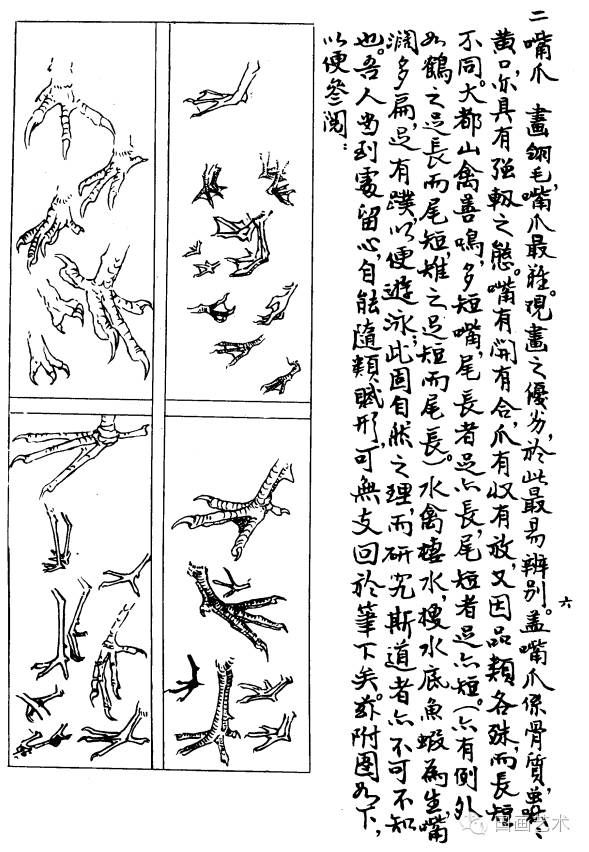 二 嘴爪 畫翎毛，嘴爪最難。視畫之優劣，於此最易辨別。蓋嘴爪係骨質，
黄口，亦具有強韌之態。嘴有開有合，爪有收有放，又因品類各殊，而長短
不同。大都山禽善鳴，多短嘴，尾長者足亦長，尾短者足亦短。（亦有例外
如鶴之足長而尾短，雉之足短而尾長）。水禽棲水，搜水底魚蝦為生，嘴
濶多扁，足有蹼，以便遊泳；此固自然之理，而研究斯道者亦不可不知
也。吾人要到處留心，自能隨類賦形，可無支回於筆下矣。茲附圖如下，
以便參閱：
六
国画艺术